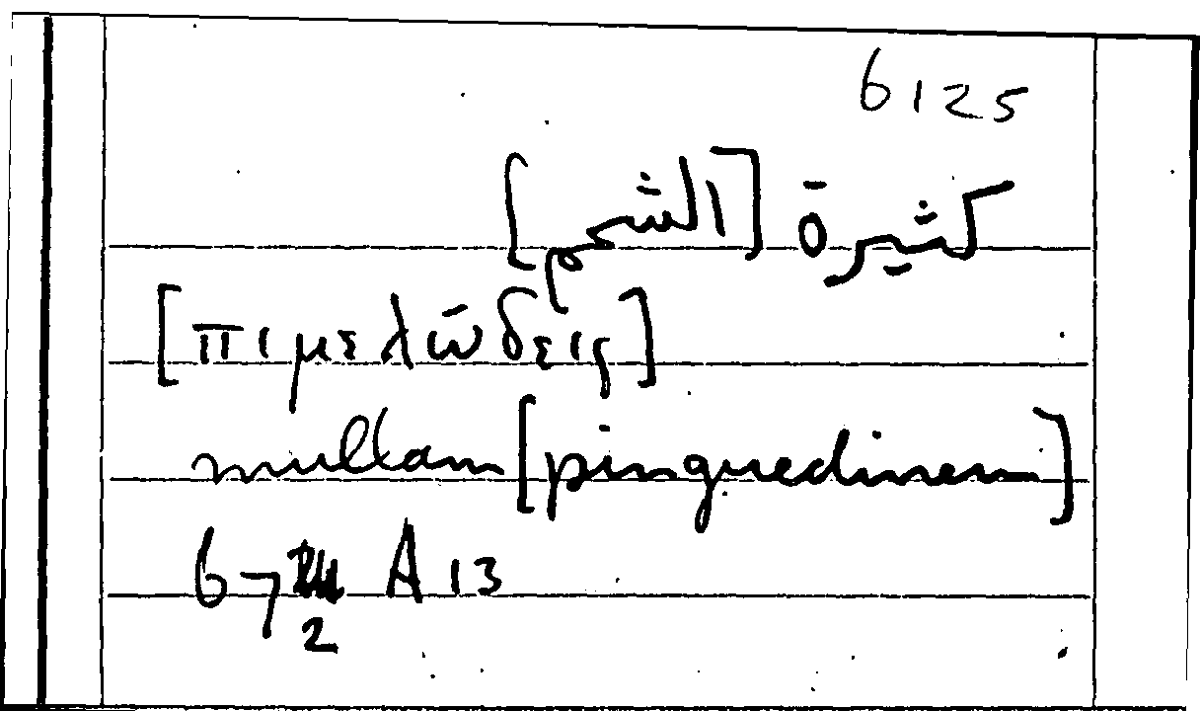 6125
كثيرة [الشحم]
[πιμελώδεις]
multam [pinguedinem]
67 A 13
2